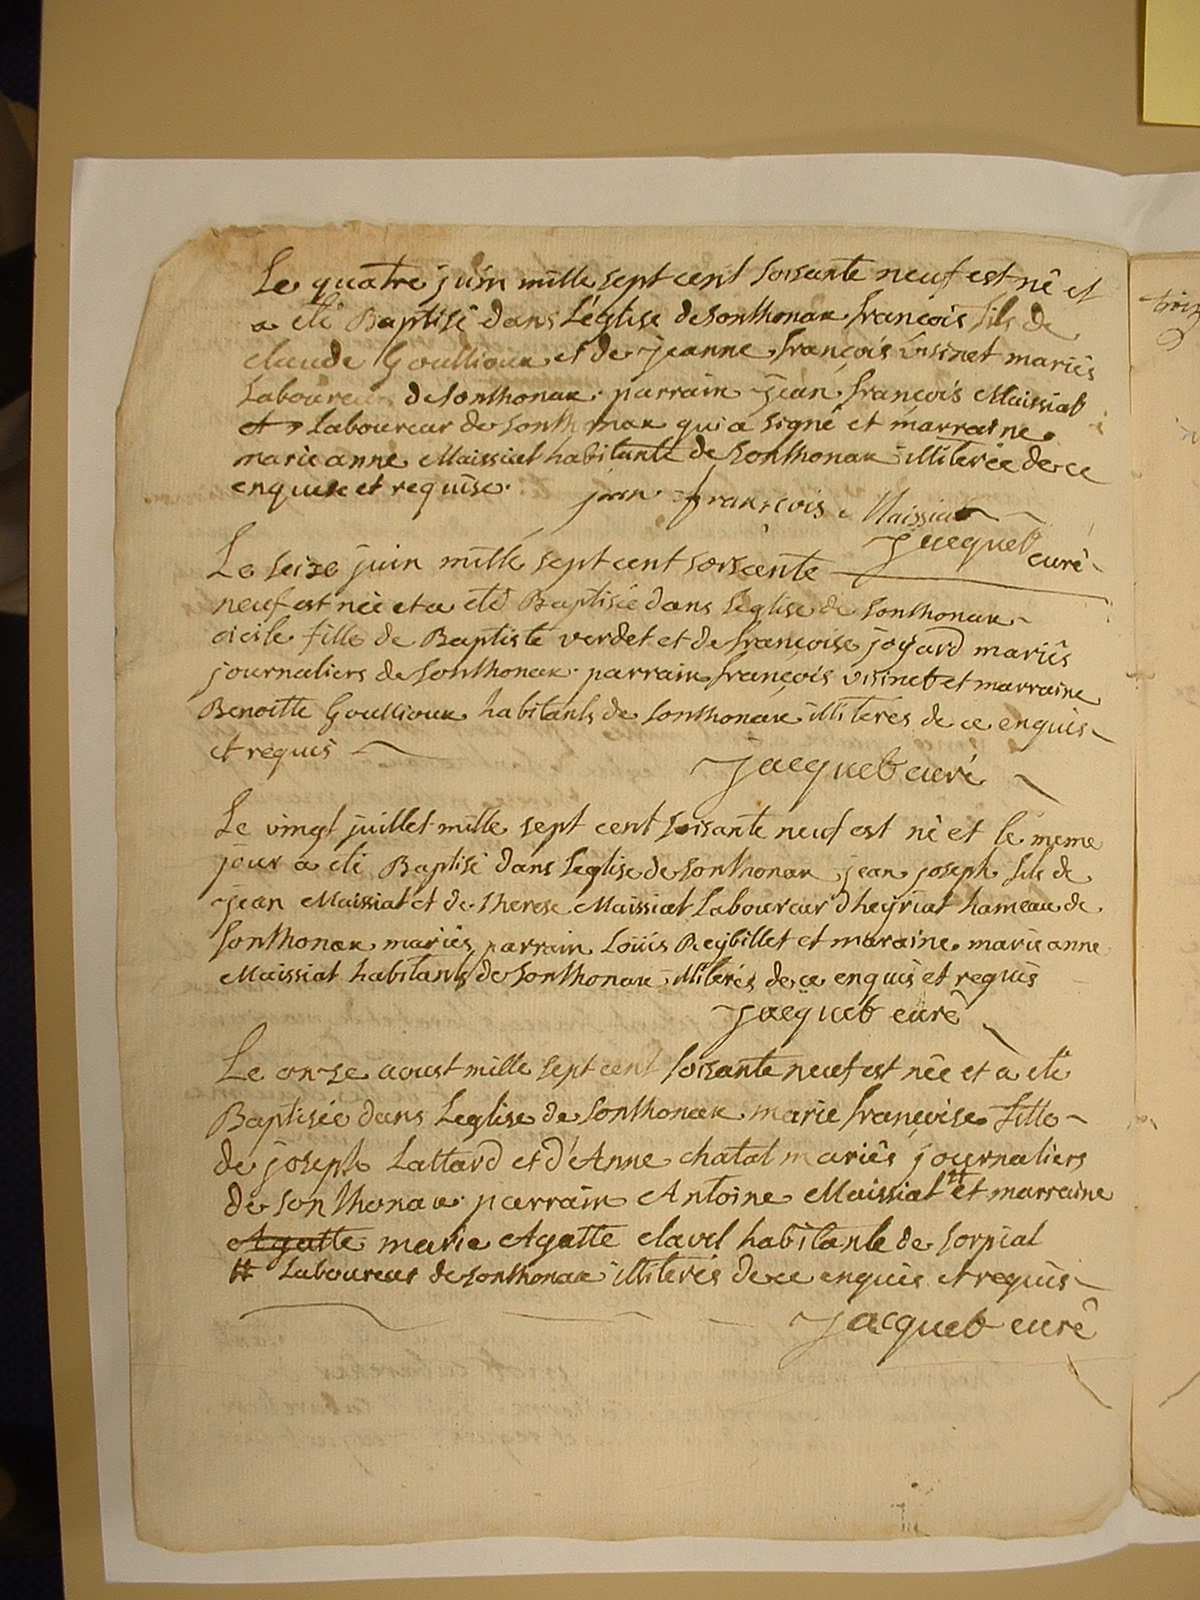 Le quatre juin mille sept cent soisante neuf est né et
a été Baptisé dans L'église de Sonthonax françois fils de
claude Goullioux et de jeanne françois mariés
Laboureur de Sonthonax parrain jean françois Maissiat
et Laboureur de Sonthonax qui a signé et marraine
marie anne Maissiat habitante de Sonthonax illiterée de ce
enquise et requise. jean françois Maissiat
jacquet curé
Le seize juin mille sept cent soissante
neuf est née et a été Baptisée dans Leglise de Sonthonax
cicile fille de Baptiste verdet et de françoise joyard mariés
journaliers de Sonthonax parrain françois visinet et marraine
Benoitte Goullioux habitants de Sonthonax illiteres de ce enquis
et requis
jacquet curé
Le vingt juillet mille sept cent soisante neuf est né et le meme
jour a été Baptisé dans Leglise de Sonthonax jean joseph fils de
jean Maissiat et de therese Maissiat Laboureur d'heyriat hameau de
Sonthonax mariés parrain Loüis Reybillet et maraine marie anne
Maissiat habitants de Sonthonax illiterés de ce enquis et requis
jacquet curé
Le onze aoust mille sept cent soisante neuf est née et a été
Baptisée dans Leglise de Sonthonax marie françoise fille
de joseph Lattard et d'Anne chatal mariés journaliers
de Sonthonax parrain Antoine Maissiat # et marraine
Agatte marie Agatte clavel habitante de Sorpiat
# Laboureur de Sonthonax illiterés de ce enquis et requis
jacquet curé